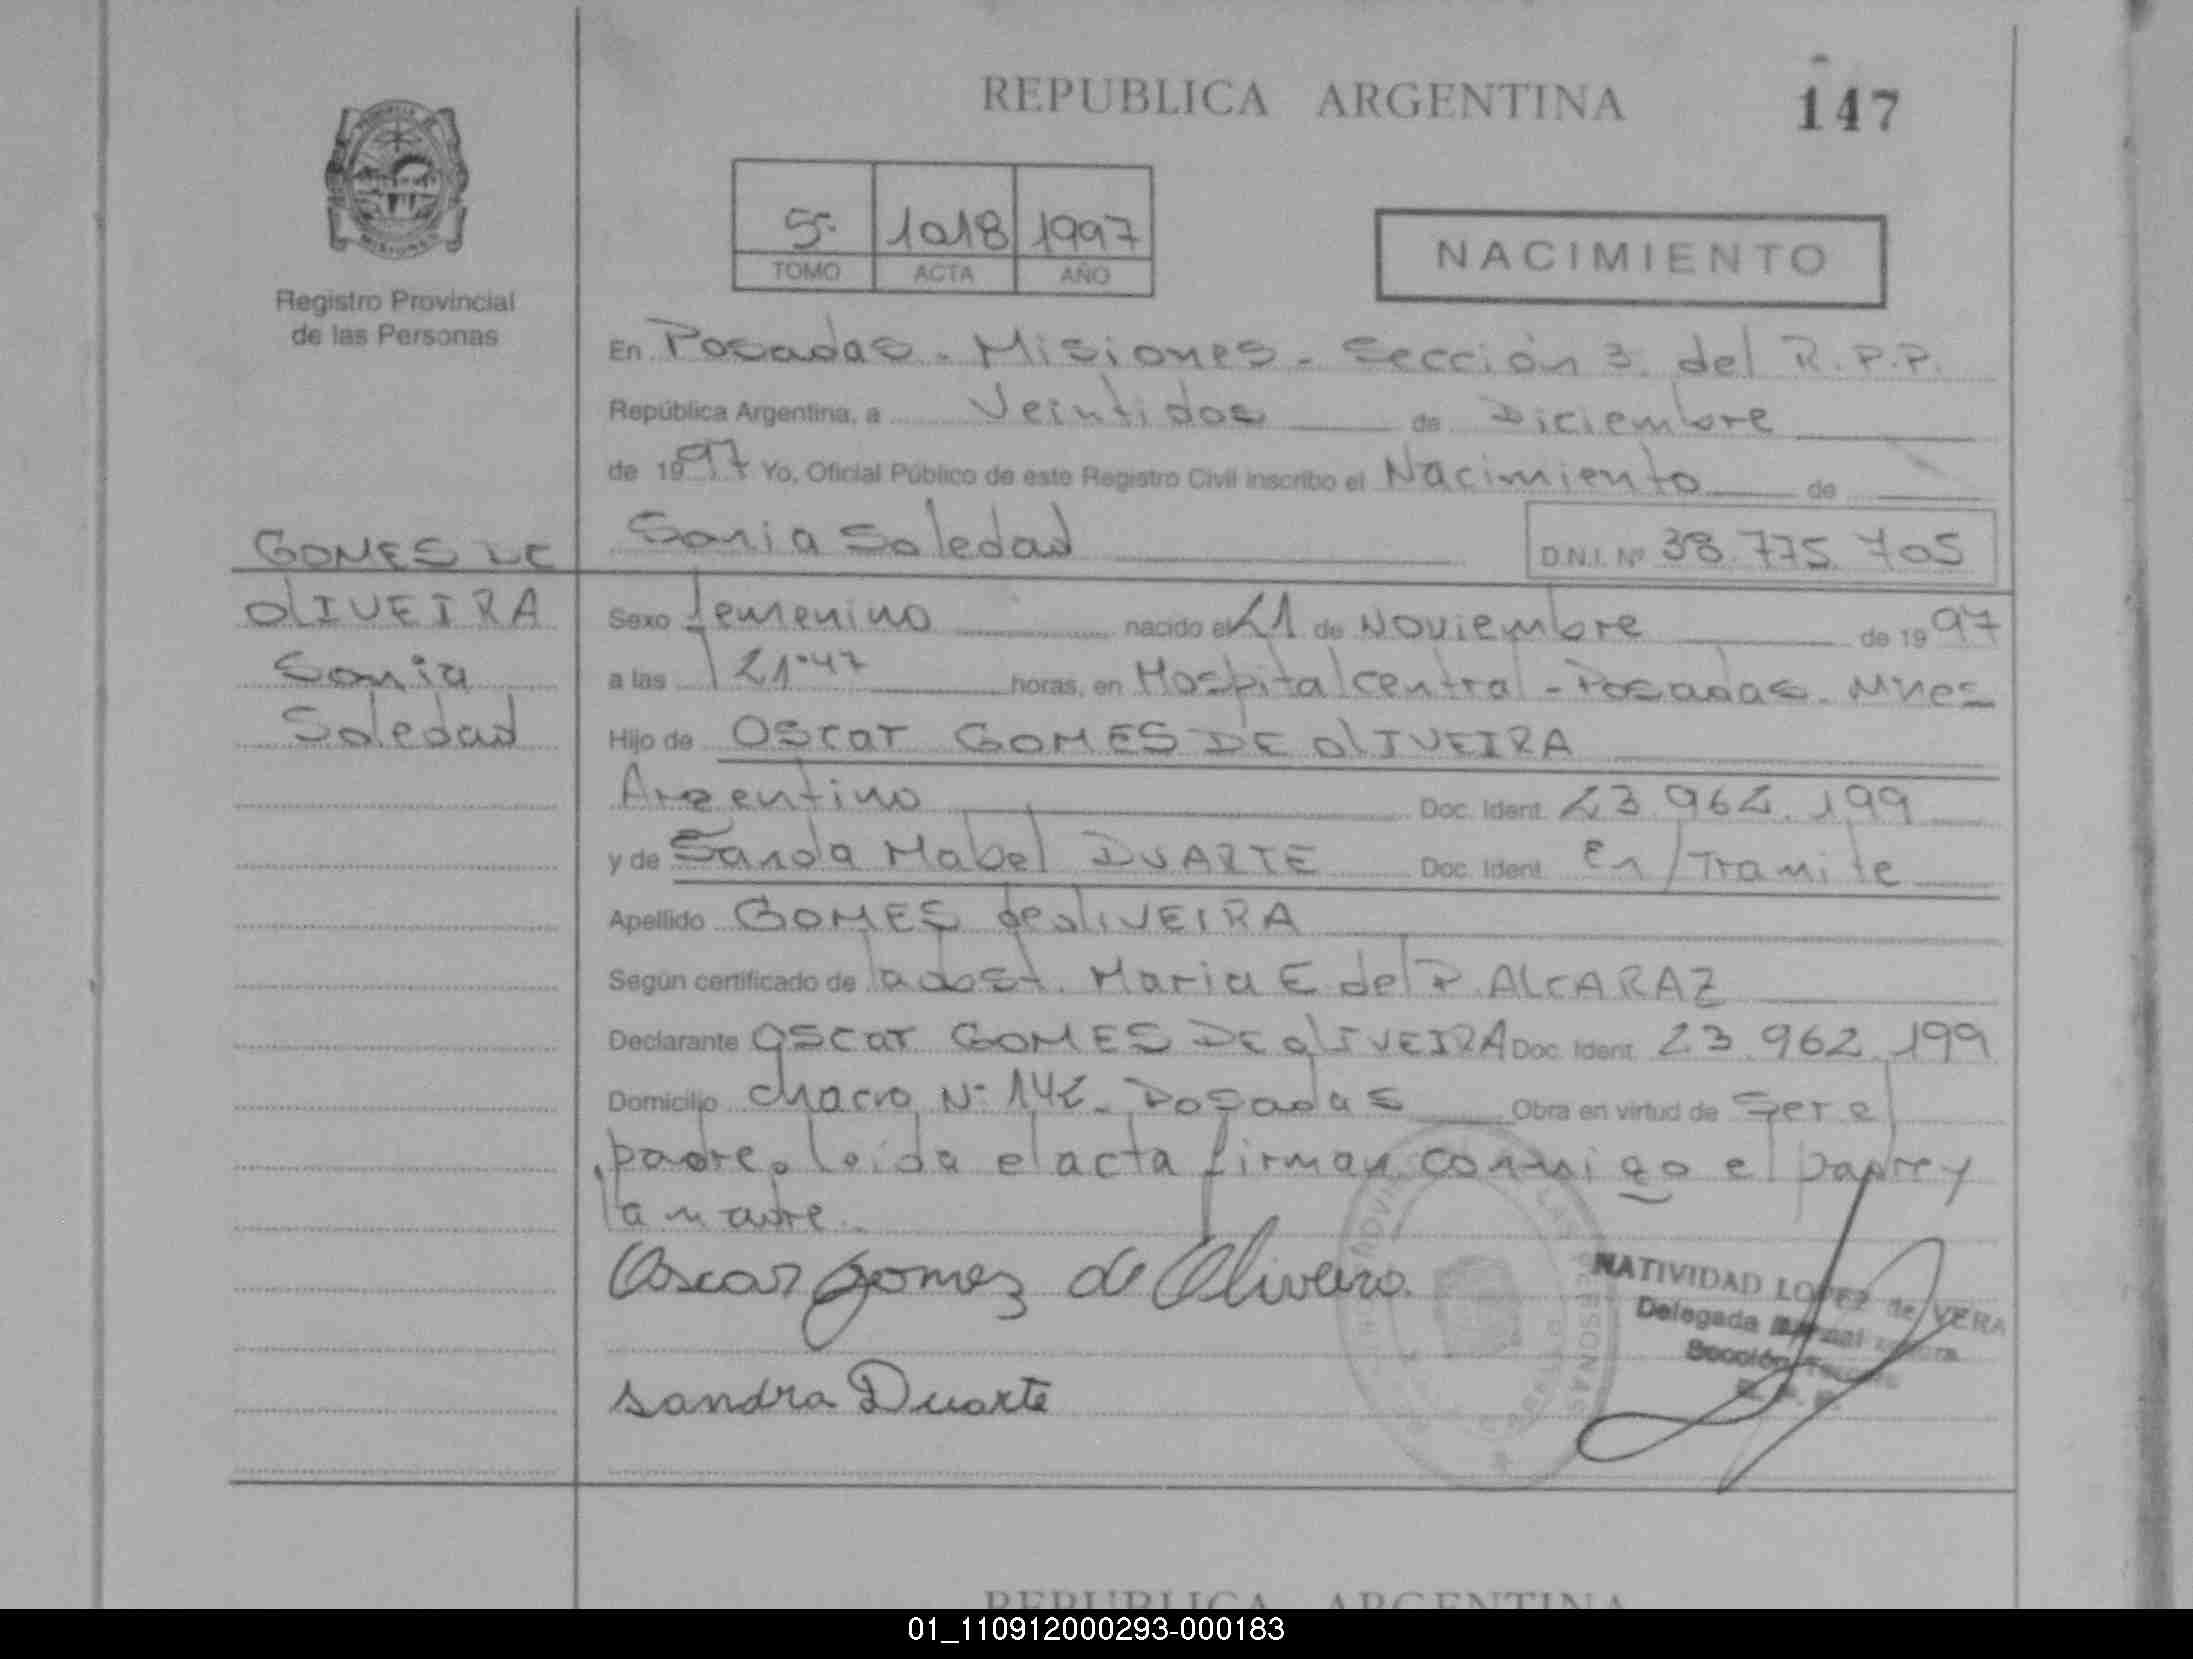 REPUBLICA ARGENTINA
147
5º 1018 1997
TOMO ACTA AÑO
NACIMIENTO
Registro Provincial
de las Personas
GOMES DE
OlIVEIRA
Sonia
Soledad
En Posadas - Misiones - Sección 3 del R.P.P.
República Argentina, a Veintidos de Diciembre
de 1997 Yo, Oficial Público de este Registro Civil inscribo el Nacimiento de
Sonia Soledad D.N.I. Nº 38.775.705
Sexo femenino nacido el 21 de Noviembre de 1997
a las 21.47 horas, en Hospital central - Posadas - Mnes
Hijo de Oscar GOMES DE OlIVEIRA
Argentino Doc. Ident. 23.962.199
y de Sanda Mabel DUARTE Doc. Ident. En/Tramite
Apellido GOMES de OlIVEIRA
Según certificado de la obst. Maria E del P. ALCARAZ
Declarante Oscar GOMES DE OlIVEIRA Doc. Ident. 23.962.199
Domicilio chacra Nº 142 - Posadas Obra en virtud de Ser el
padre. Leida el acta firman conmigo el padre y
la madre.
Oscar gomez de Oliveira
NATIVIDAD LOPEZ de VERA
Delegada
Sección
sandra Duarte
REPUBLICA ARGENTINA
01_110912000293-000183